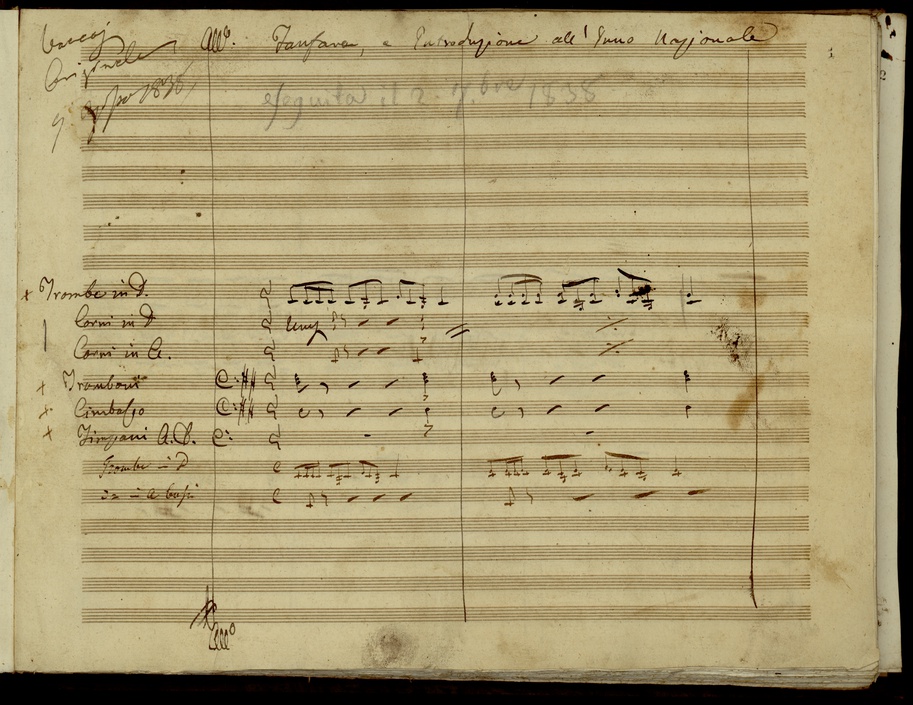 Vaccaj
Originale
9. Agosto 1838
All.º Fanfara, e Introduzione all'Inno Nazionale
1
eseguita il 2 7.bre 1838
2
x Trombe in D.
Corni in D
Corni in A.
x Tromboni
x Cimbasso
x Timpani A. D.
Trombe in D
in a bassi
All.º